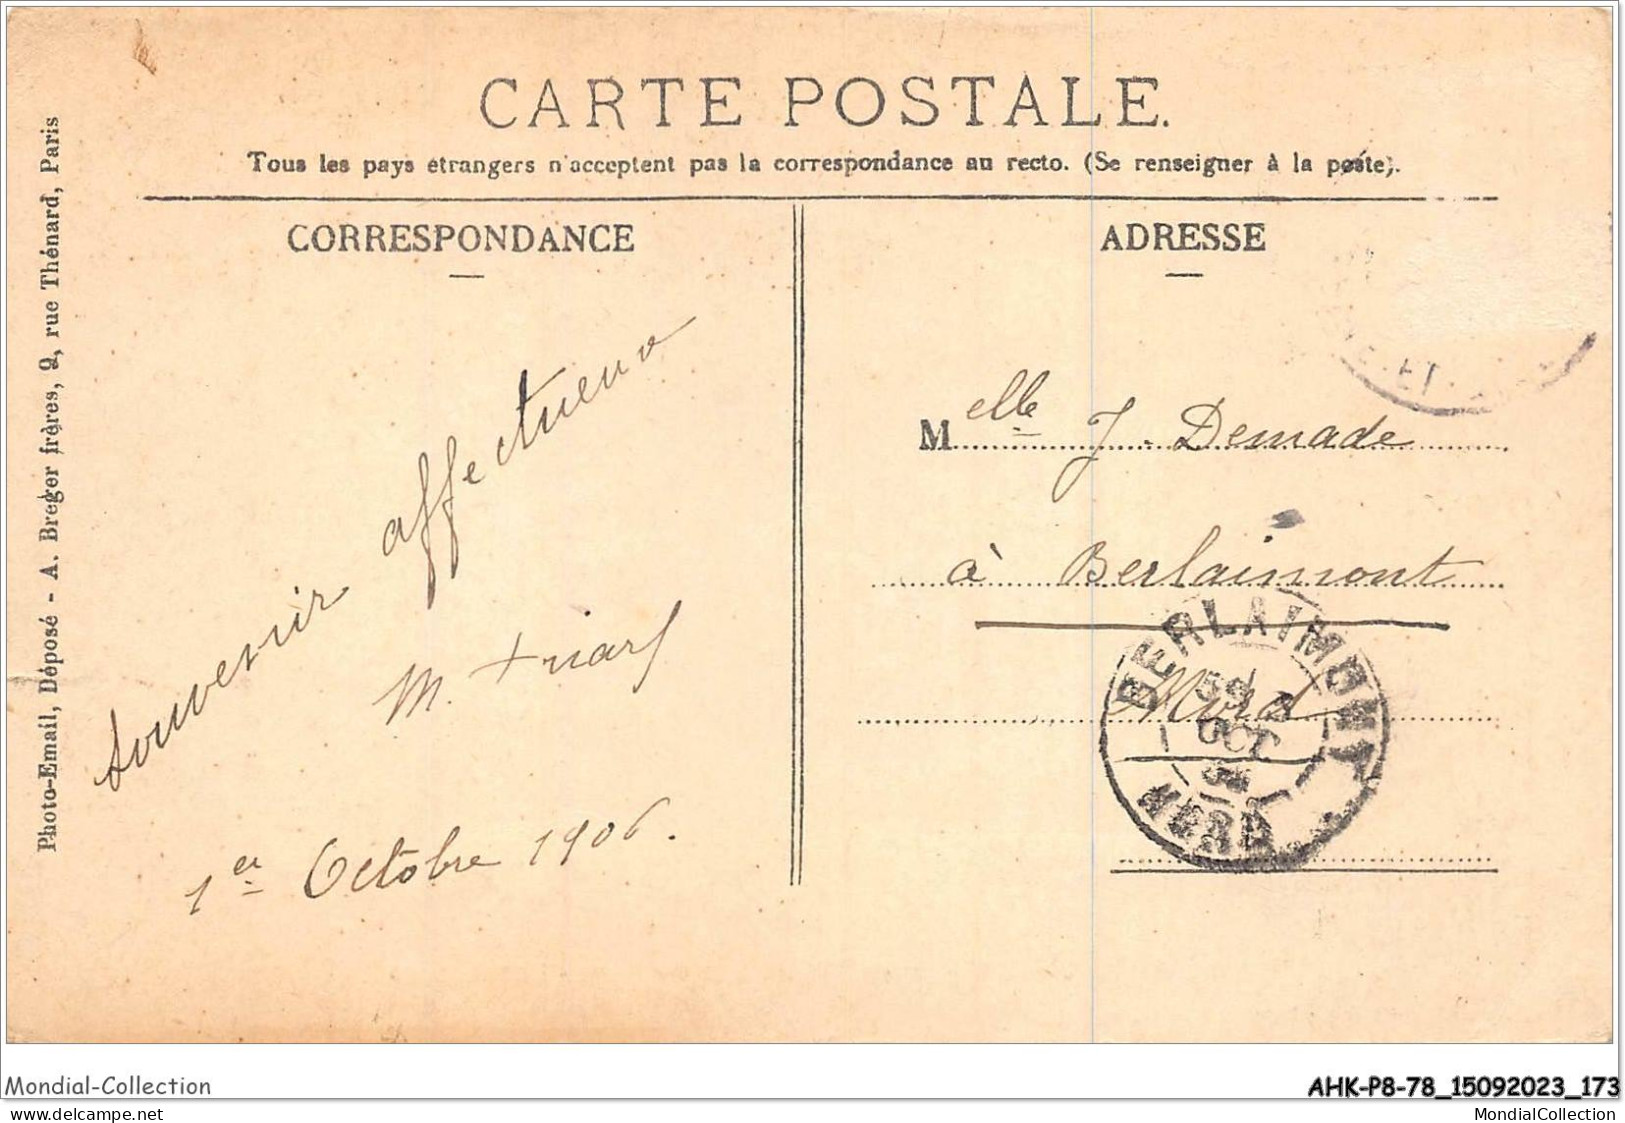 CARTE POSTALE.
Tous les pays étrangers n'acceptent pas la correspondance au recto. (Se renseigner à la poste).
Photo-Email, Déposé - A. Breger frères, 9, rue Thénard, Paris
CORRESPONDANCE
Souvenir affectueux
M.
1er Octobre 1906.
ADRESSE
ET
Melle J. Demade
à Berlaimont
Nord
BERLAIMONT
OCT
NORD
Mondial-Collection
AHK-P8-78_15092023_173
delcampe.net
MondialCollection